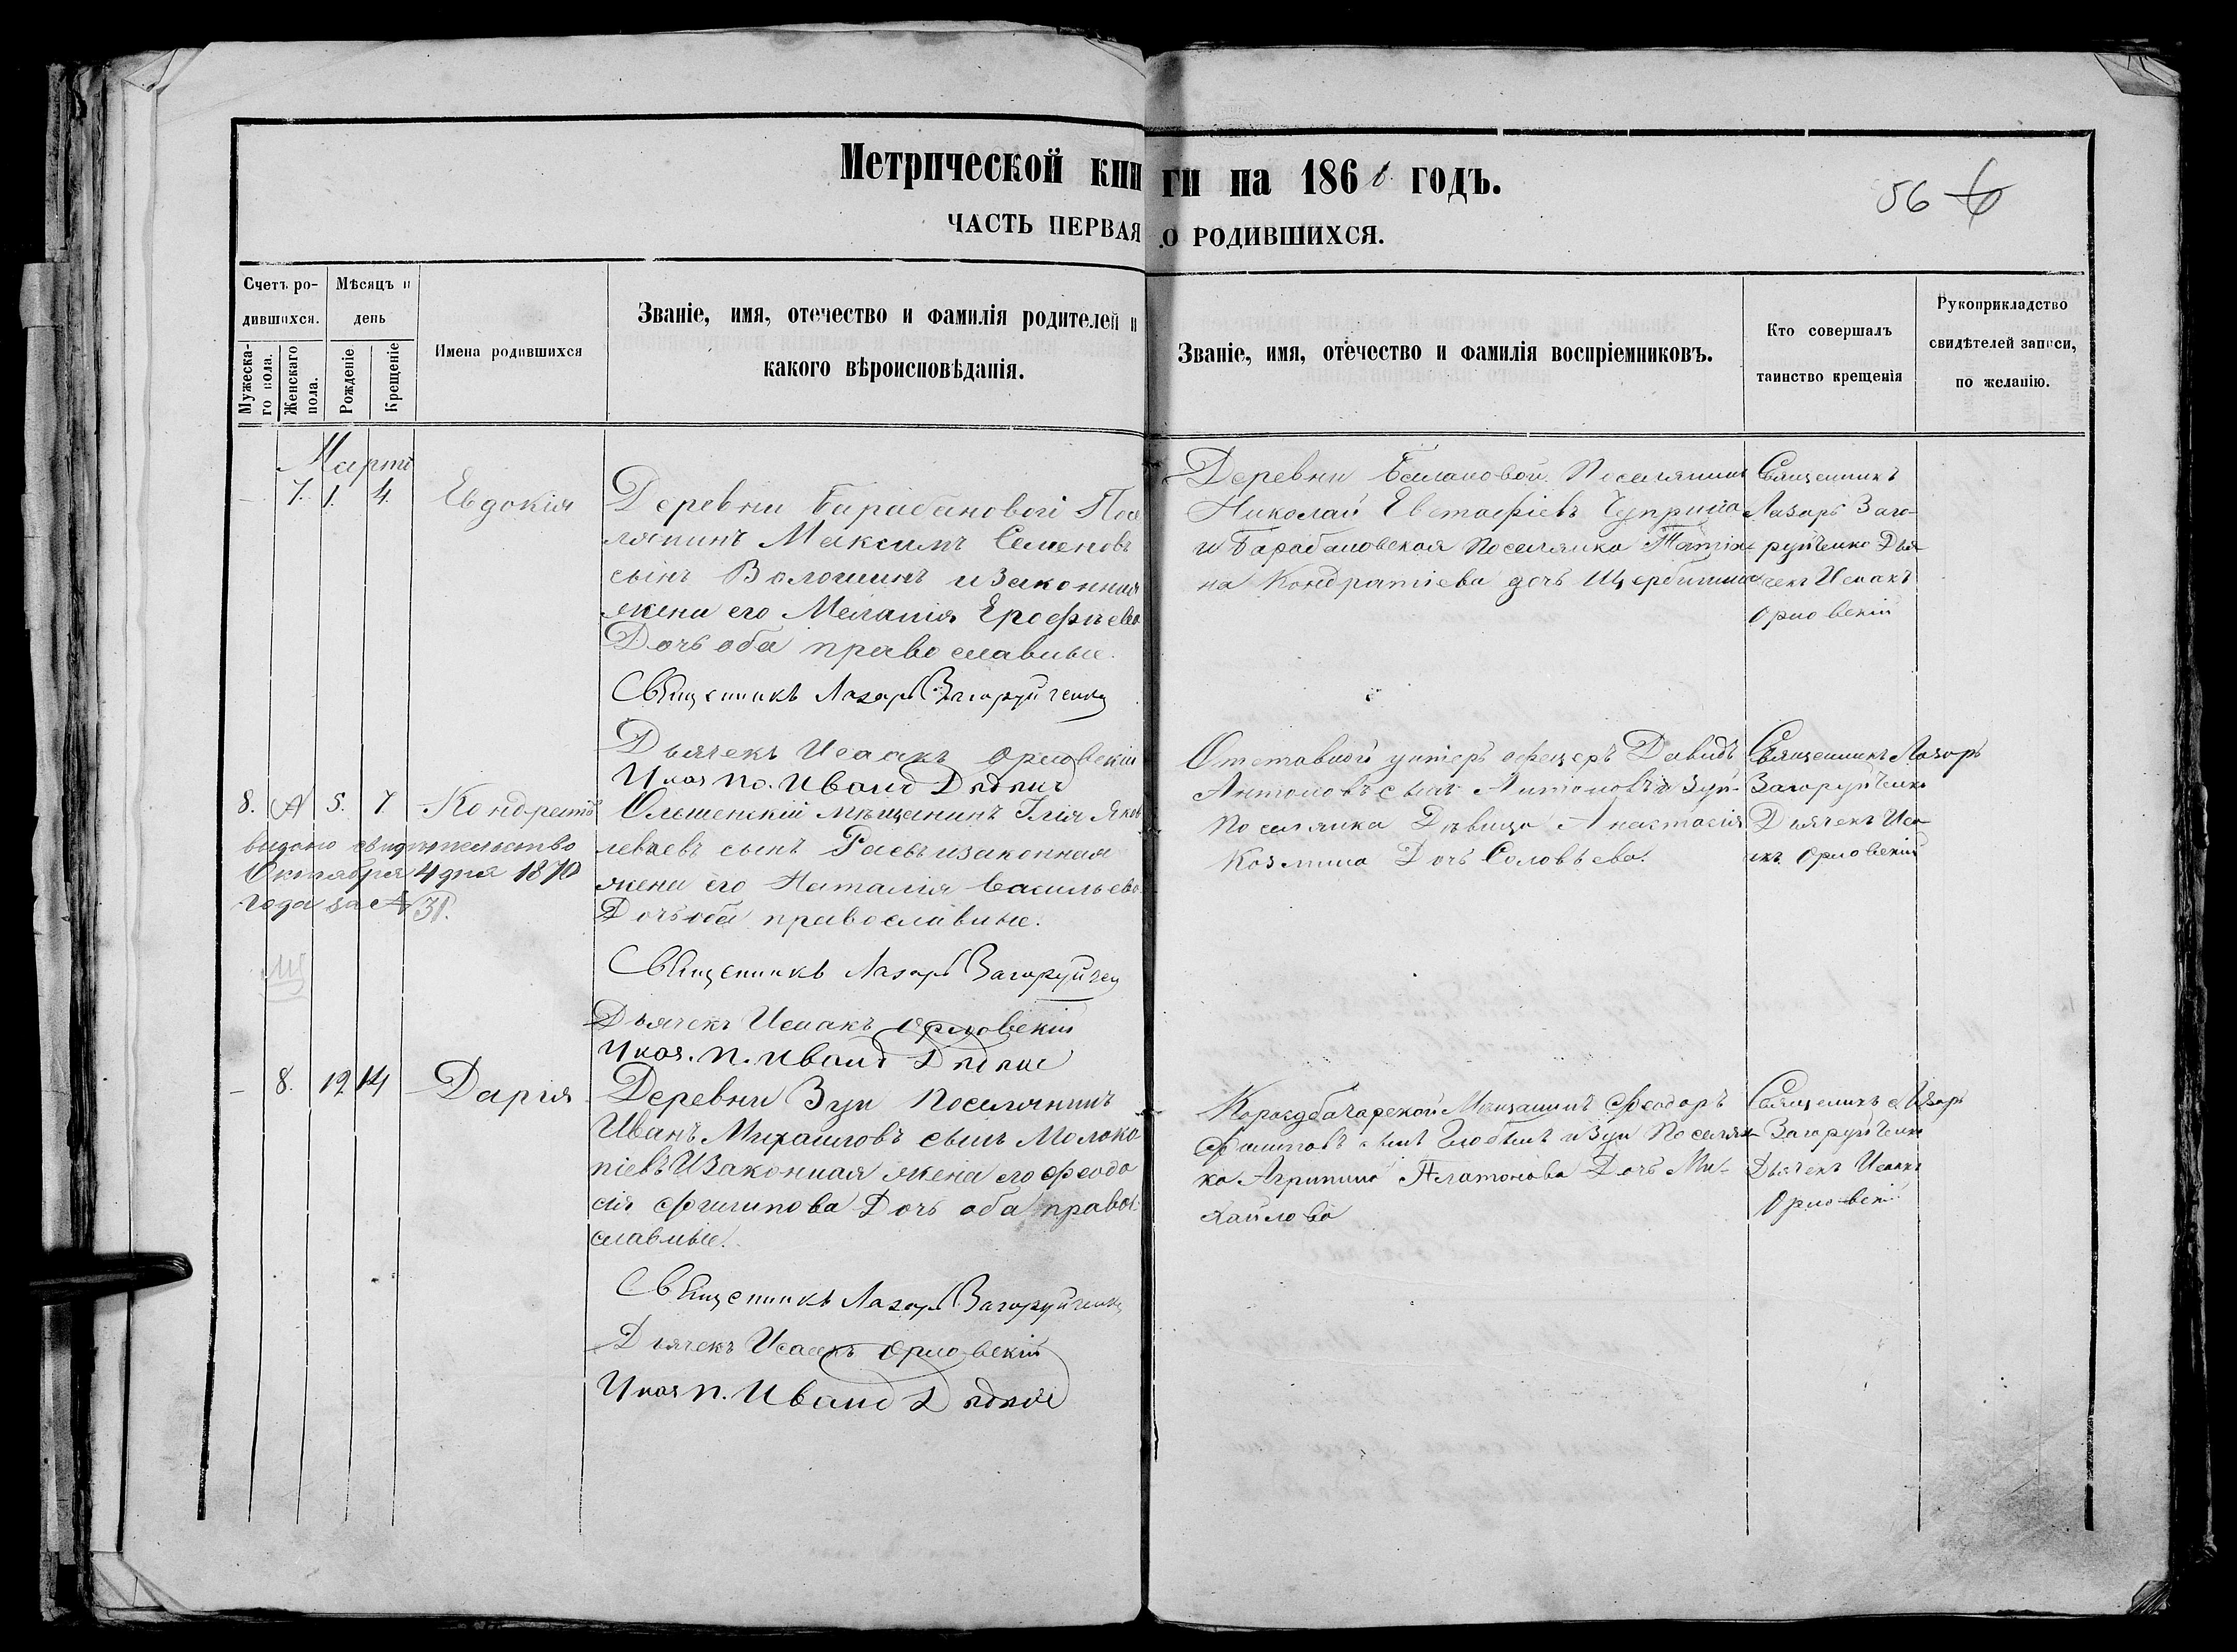 Метрической книги на 186 годъ.
56
ЧАСТЬ ПЕРВАЯ О РОДИВШИХСЯ.
Счетъ ро-
дившихся.
Мужеска-
го пола.
Женскаго
пола.
Мѣсяцъ и
день
Рожденіе
Крещеніе
Имена родившихся
Званіе, имя, отечество и фамилія родителей и
какого вѣроисповѣданія.
Званіе, имя, отечество и фамилія воспріемниковъ.
Кто совершалъ
таинство крещенія
Рукоприкладство
свидѣтелей записи,
по желанію.
Мартъ
7. 1. 4. Евдокія
Деревни Барабановой Посе
лянинъ Максимъ Семеновъ
сынъ Волошинъ и законная
жена его Меланія Ерофѣева
Дочь оба православные.
Священникъ Лазарь Загоруйченко
Дьячекъ Исаакъ Орловскій
Иванъ
Деревни Поселянинъ
Николай Евстафіевъ Чуприна
и Барабановская поселянка Татіа
на Кондратіева дочь
Священникъ
Лазарь Заго-
руйченко Дья
чекъ Исаакъ
Орловскій
8. 5. 7. Кондратъ
выдано свидѣтельство
Октября 4 дня 1870
года за № 31.
мѣщанинъ Илія Яков
левъ сынъ и законная
жена его Наталія Васильева
Дочь оба православные.
Священникъ Лазарь Загоруйчен
Дьячекъ Исаакъ Орловскій
Иванъ
Отставной унтеръ офицеръ Давидъ
Антоновъ сынъ
поселянка Дѣвица Анастасія
Козмина Дочь Соловьева.
Священникъ Лазарь
Загоруйченко
Дьячекъ Иса
акъ Орловскій
8. 12 14 Дарія
Деревни Зуи поселянинъ
Иванъ Михаиловъ сынъ Молоко
піевъ и законная жена его Феодо
сія Филипова Дочь оба право
славные.
Священникъ Лазарь Загоруйченко
Дьячекъ Исаакъ Орловскій
Иванъ
Мѣщанинъ Феодоръ
сынъ и Зуи поселян
ка Агрипина Платонова Дочь Ми-
хайлова
Священикъ Лазарь
Загоруйченко
Дьячекъ Исаакъ
Орловскій